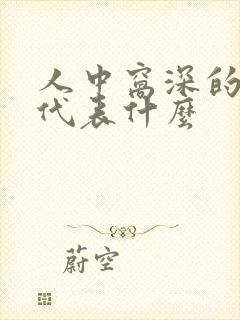 人中窩深的
代表什麼
蔚空